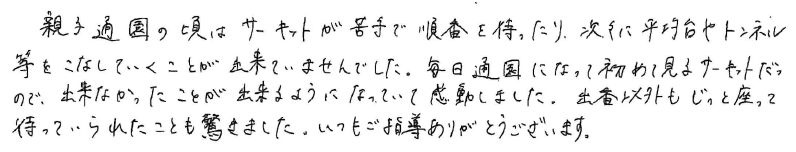 親子通園の頃はサーキットが苦手で順番を待ったり、次々に平均台やトンネル
等をこなしていくことが出来ていませんでした。毎日通園になって初めて見るサーキットだっ
ので、出来なかったことが出来るようになっていて感動しました。出番以外もじっと座って
待っていられたことも驚きました。いつもご指導ありがとうございます。